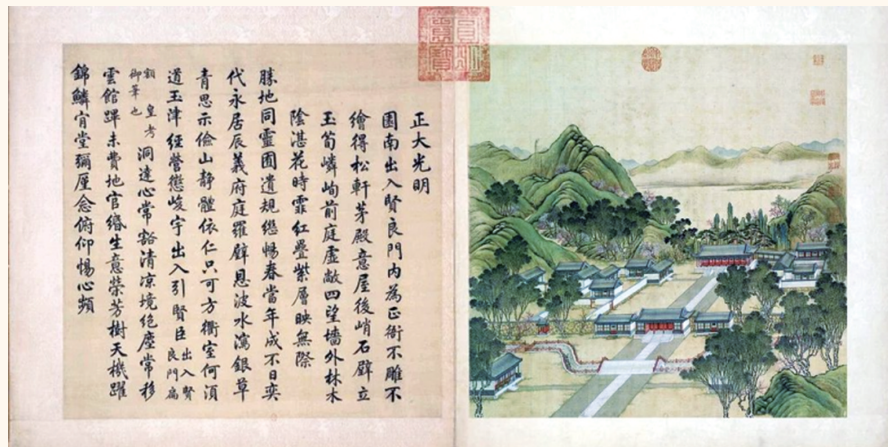 正大光明
園南出入賢良門內為正衙不雕不
繪得松軒茅殿意屋後峭石壁立
玉筍嶙峋前庭虛敞四望墻外林木
陰湛花時霏紅疊紫層映無際
勝地同靈囿遺規繼暢春當年成不日奕
代永居辰義府庭羅壁恩波水瀉銀草
青思示儉山靜體依仁只可方衢室何須
道玉津經營懲峻宇出入引賢臣出入賢良門
皇考御筆也洞達心常豁清涼境絕塵常移
雲館蹕未費地官緡生意榮芳樹天機躍
錦鱗肯堂彌厪念俯仰惕心頻